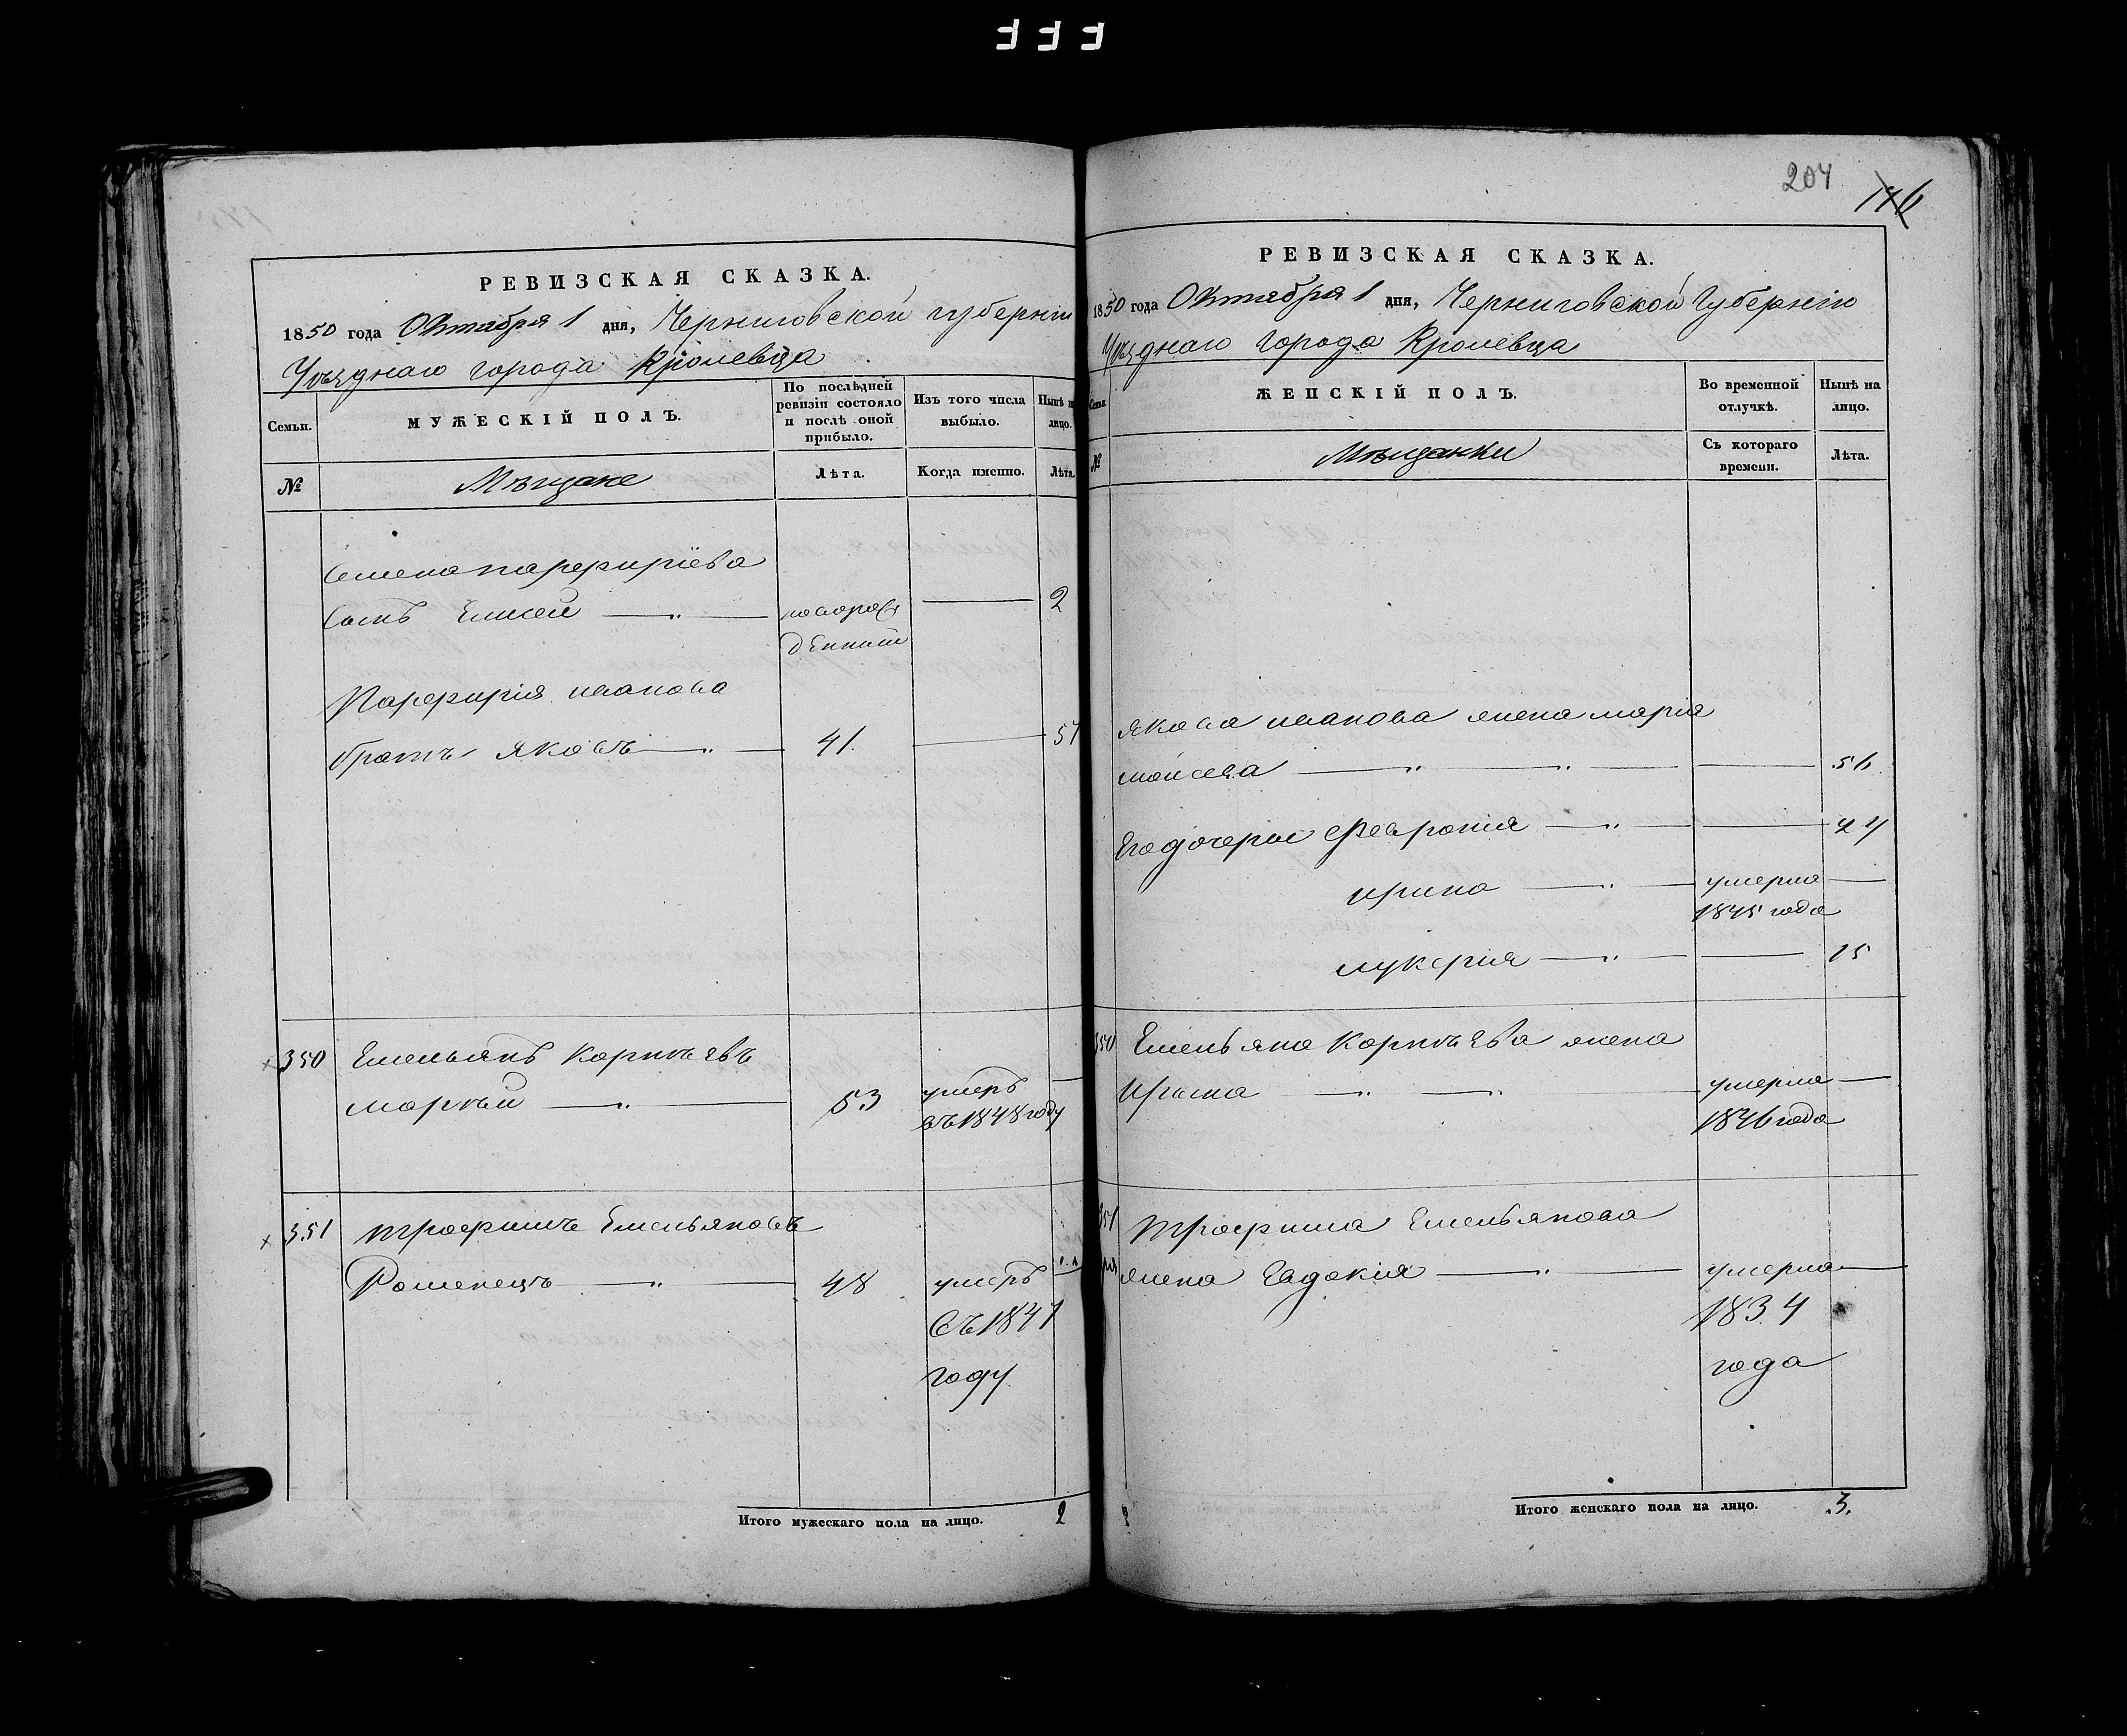 FFF
РЕВИЗСКАЯ СКАЗКА.
1850 года Октября 1 дня, Черниговской губерніи
Уѣзднаго города Кролевца
Семьи.
МУЖЕСКІЙ ПОЛЪ.
По послѣдней ревизіи состояло и послѣ оной прибыло.
Изъ того числа выбыло.
Нынѣ на лицо.
№
Мѣщане
Лѣта.
Когда именно.
Лѣта.
Семена парфиріева
сынъ Елисей новорож 2
денний
Парфирія иванова
братъ яковъ 41. 51
350 Емельянъ Корнѣевъ
53 умеръ
въ 1848 году
351 трофимъ Емельяновъ
Роменецъ 48 умеръ
въ 1847
году
Итого мужескаго пола на лицо. 2
204
146
РЕВИЗСКАЯ СКАЗКА.
1850 года Октября 1 дня, Черниговской Губерніи
Уѣзднаго города Кролевца
Семьи.
ЖЕНСКІЙ ПОЛЪ.
Во временной отлучкѣ.
Нынѣ на лицо.
№
Мѣщанки
Съ котораго времени.
Лѣта.
якова иванова жена марія
мойсева 56
Его дочери Февронія 24
ирина умерла
1845 года
лукерия 15
350 Емельяна Корнѣева жена
Ирина умерла
1846 года
351 трофима Емельянова
жена Евдокия умерла
1834
года
Итого женскаго пола на лицо. 3.